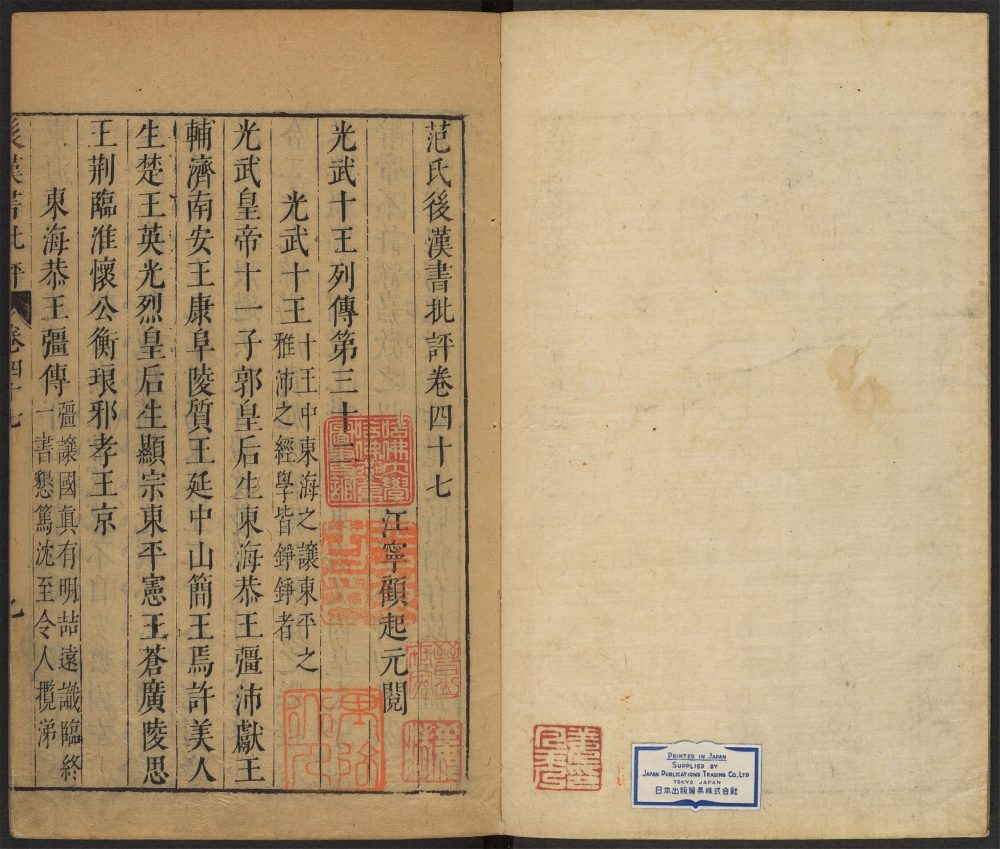 范氏後漢書批評卷四十七
江寧顧起元閱
光武十王列傳第三十二
光武十王
十王中東海之讓東平之
雅沛之經學皆錚錚者
光武皇帝十一子郭皇后生東海恭王彊沛獻王
輔濟南安王康阜陵質王延中山簡王焉許美人
生楚王英光烈皇后生顯宗東平憲王蒼廣陵思
王荆臨淮懷公衡琅邪孝王京
東海恭王彊傳
彊讓國真有明喆遠識臨終
一書懇篤沈至令人攬涕
後漢書批評
卷四十七
九
哈佛大學
PRINTED IN JAPAN
SUPPLIED BY
JAPAN PUBLICATIONS TRADING CO., LTD
TOKYO JAPAN
日本出版貿易株式會社